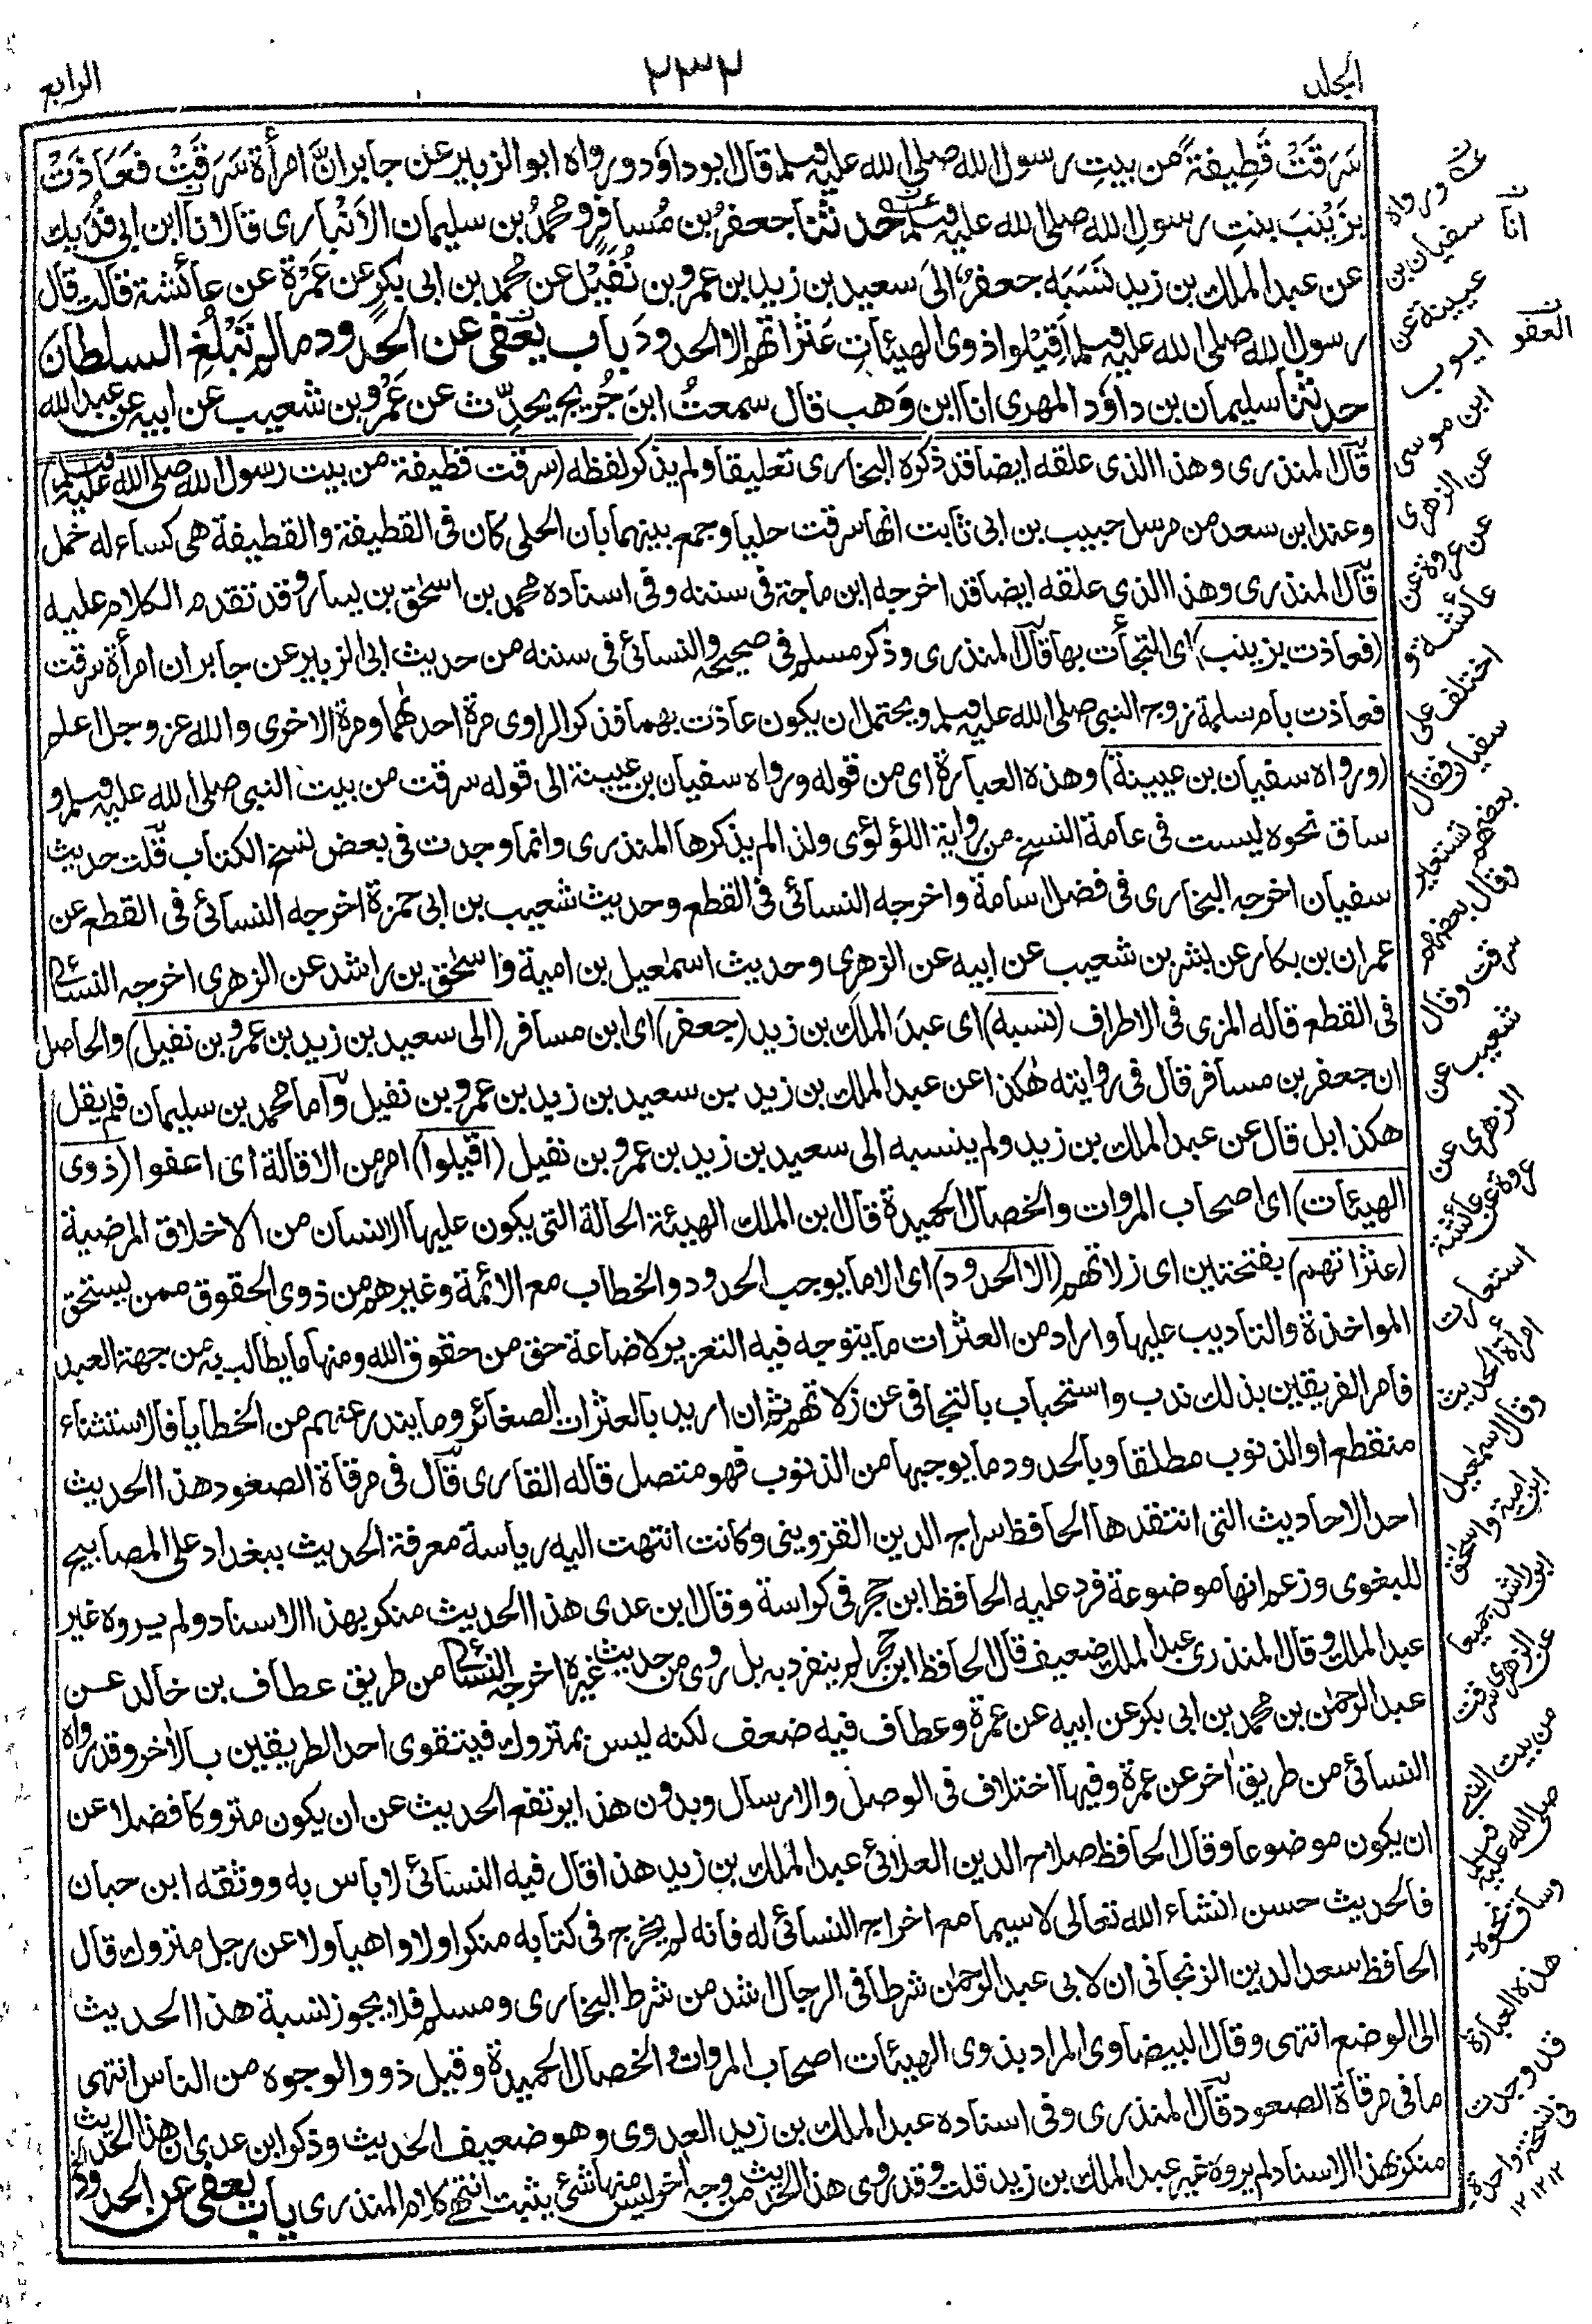 المجلد
٢٣٢
الرابع
سَرَقَتْ قَطِيفَةً من بيتِ رسول الله صلى الله عليه وسلم قال ابوداؤد ورواه ابوالزبير عن جابر انَّ امرأة سَرَقَتْ فَعَاذَتْ
بِزَيْنَبَ بنتِ رسولِ الله صلى الله عليه وسلم حدثنا جعفرُ بن مُسافِرٍ ومحمدُ بن سليمان الاَنْبارى قالا نا ابن ابى فُدَيك
عن عبد الملك بن زيد نَسَبَه جعفرٌ الىَ سعيد بن زيد بن عمرو بن نُفَيْل عن محمد بن ابى بكر عن عَمْرَة عن عائشة قالت قال
رسول الله صلى الله عليه وسلم اَقِيْلوا ذوى الهيئاتِ عَثَرَاتهم الا الحدودَ باب يُعْفى عن الحُدود مالم تَبْلُغِ السلطان
حدثنا سليمان بن داؤد المهرى انا ابن وَهب قال سمعتُ ابنَ جُرَيج يحدِّث عن عَمْرو بن شعيب عن ابيه عن عبد الله
قال المنذرى وهذا الذى علقه ايضا قد ذكره البخارى تعليقا ولم يذكر لفظه (سرقت قطيفة من بيت رسول الله صلى الله عليه وسلم)
وعند ابن سعد من مرسل حبيب بن ابى ثابت انها سرقت حليا وجمع بينهما بان الحلى كان فى القطيفة والقطيفة هى كساء له خمل
قال المنذرى وهذا الذى علقه ايضا قد اخرجه ابن ماجة فى سننه وفى اسناده محمد بن اسحٰق بن يسار وقد تقدم الكلام عليه
(فعاذت بزينب) اى التجأت بها قال المنذرى وذكر مسلم فى صحيحه والنسائى فى سننه من حديث ابى الزبير عن جابر ان امرأة سرقت
فعاذت بام سلمة زوج النبى صلى الله عليه وسلم ويحتمل ان يكون عاذت بهما فذكر الراوى مرة احدٰهما ومرة الاخرى والله عز وجل اعلم
(ورواه سفيان بن عيينة) وهذه العبارة اى من قوله ورواه سفيان بن عيينة الى قوله سرقت من بيت النبى صلى الله عليه وسلم و
ساق نحوه ليست فى عامة النسخ من رواية اللؤلؤى ولذا لم يذكرها المنذرى وانما وجدت فى بعض نسخ الكتاب قلت حديث
سفيان اخرجه البخارى فى فضل اسامة واخرجه النسائى فى القطع وحديث شعيب بن ابى حمزة اخرجه النسائى فى القطع عن
عمران بن بكار عن بشر بن شعيب عن ابيه عن الزهرى وحديث اسمٰعيل بن امية واسحٰق بن راشد عن الزهرى اخرجه النسائى
فى القطع قاله المزى فى الاطراف (نسبه) اى عبد الملك بن زيد (جعفر) اى ابن مسافر (الى سعيد بن زيد بن عمرو بن نفيل) والحاصل
ان جعفر بن مسافر قال فى روايته هٰكذا عن عبد الملك بن زيد بن سعيد بن زيد بن عمرو بن نفيل واما محمد بن سليمان فلم يقل
هكذا بل قال عن عبد الملك بن زيد ولم ينسبه الى سعيد بن زيد بن عمرو بن نفيل (اقيلوا) امر من الاقالة اى اعفوا (ذوى
الهيئات) اى اصحاب المروات والخصال الحميدة قال ابن الملك الهيئة الحالة التى يكون عليها الانسان من الاخلاق المرضية
(عثراتهم) بفتحتين اى زلاتهم (الا الحدود) اى الا ما يوجب الحدود والخطاب مع الائمة وغيرهم من ذوى الحقوق ممن يستحق
المواخذة والتاديب عليها واراد من العثرات ما يتوجه فيه التعزير لاضاعة حق من حقوق الله ومنها ما يطالب به من جهة العبد
فامر الفريقين بذلك ندب واستحباب بالتجافى عن زلاتهم ثم ان اريد بالعثرات الصغائر وما يندر عنهم من الخطايا فالاستثناء
منقطع او الذنوب مطلقا وبالحدود ما يوجبها من الذنوب فهو متصل قاله القارى قال فى مرقاة الصعود هذا الحديث
احد الاحاديث التى انتقدها الحافظ سراج الدين القزوينى وكانت انتهت اليه رياسة معرفة الحديث ببغداد على المصابيح
للبغوى وزعم انها موضوعة فرد عليه الحافظ ابن حجر فى كراسة وقال ابن عدى هذا الحديث منكر بهذا الاسناد ولم يروه غير
عبد الملك وقال المنذرى عبد الملك ضعيف قال الحافظ ابن حجر لم ينفرد به بل روى من حديث غيره اخرجه النسائى من طريق عطاف بن خالد عن
عبد الرحمٰن بن محمد بن ابى بكر عن ابيه عن عمرة وعطاف فيه ضعف لكنه ليس بمتروك فيتقوى احد الطريقين بالاٰخر وقد رواه
النسائى من طريق اٰخر عن عمرة وفيها اختلاف فى الوصل والارسال وبدون هذا يرتفع الحديث عن ان يكون متروكا فضلا عن
ان يكون موضوعا وقال الحافظ صلاح الدين العلائى عبد الملك بن زيد هذا قال فيه النسائى لا باس به ووثقه ابن حبان
فالحديث حسن انشاء الله تعالى لا سيما مع اخراج النسائى له فانه لم يخرج فى كتابه منكرا ولا واهيا ولا عن رجل متروك قال
الحافظ سعد الدين الزنجانى ان لابى عبد الرحمٰن شرطا فى الرجال اشد من شرط البخارى ومسلم فلا يجوز نسبة هذا الحديث
الى الوضع انتهى وقال البيضاوى المراد بذوى الهيئات اصحاب المروات والخصال الحميدة وقيل ذوو الوجوه من الناس انتهى
ما فى مرقاة الصعود قال المنذرى وفى اسناده عبد الملك بن زيد العدوى وهو ضعيف الحديث وذكر ابن عدى ان هذا الحديث
منكر بهذا الاسناد لم يروه غير عبد الملك بن زيد قلت وقد روى هذا الحديث من وجه اٰخر ليس منها شئ يثبت انتهى كلام المنذرى باب يعفى عن الحدود
ورواه
سفيان بن
عيينة عن
ايوب
ابن موسى
عن الزهرى
عن عروة عن
عائشة و
اختلف على
سفيان فقال
بعضهم تستعير
وقال بعضهم
سرقت وقال
شعيب عن
الزهرى عن
عروة عن عائشة
استعارت
امرأة الحديث
وقال اسمٰعيل
ابن امية واسحٰق
ابن راشد جميعا
عن الزهرى سرقت
من بيت النبى
صلى الله عليه وسلم
وساق نحوه
هذه العبارة
قد وجدت
فى نسخة واحدة
١٢ ١٢ ١٢
انا
العفو